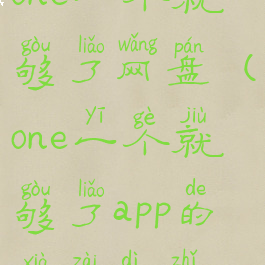 one一个就
gòu liǎo wǎng pán
够了网盘（
yī gè jiù
one一个就
gòu liǎo de
够了app的
xià zài dì zhǐ